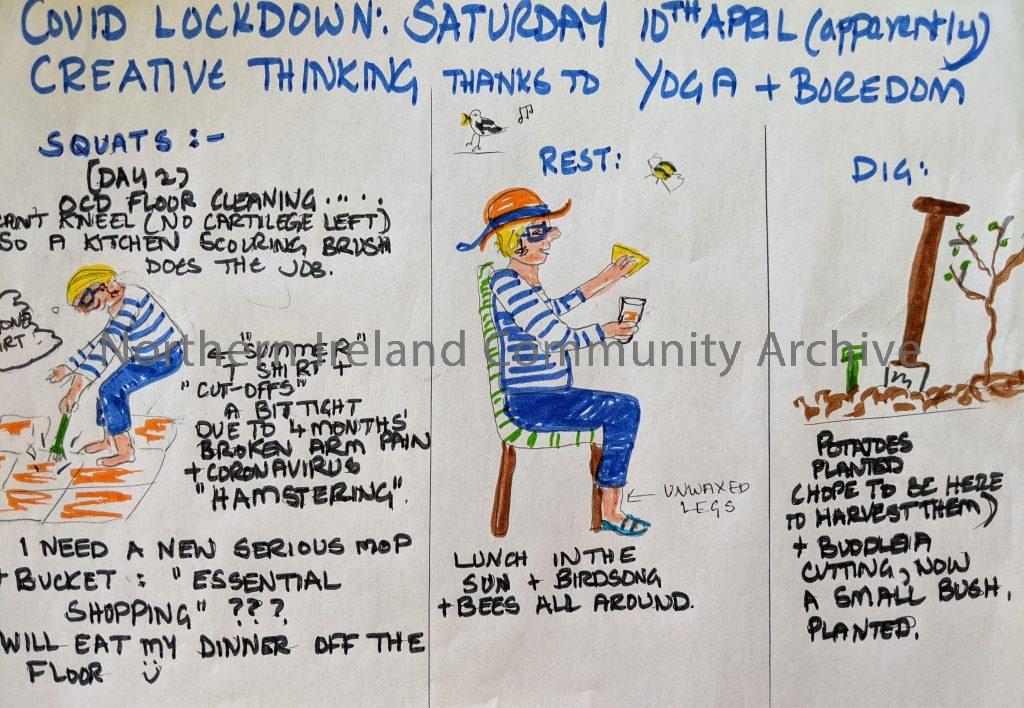 COVID LOCKDOWN: SATURDAY 10TH APRIL (apparently)
CREATIVE THINKING THANKS TO YOGA + BOREDOM
SQUATS :-
(DAY 2)
OCD FLOOR CLEANING.....
CAN'T KNEEL (NO CARTILEGE LEFT)
SO A KITCHEN SCOURING BRUSH
DOES THE JOB.
← "SUMMER"
T SHIRT +
"CUT-OFFS"
A BIT TIGHT
DUE TO 4 MONTHS'
BROKEN ARM PAIN
+ CORONAVIRUS
"HAMSTERING".
I NEED A NEW SERIOUS MOP
+ BUCKET : "ESSENTIAL
SHOPPING" ???
WILL EAT MY DINNER OFF THE
FLOOR
REST:
← UNWAXED
LEGS
LUNCH IN THE
SUN + BIRDSONG
+ BEES ALL AROUND.
DIG:
POTATOES
PLANTED
(HOPE TO BE HERE
TO HARVEST THEM)
+ BUDDLEIA
CUTTING, NOW
A SMALL BUSH,
PLANTED.
Northern Ireland Community Archive